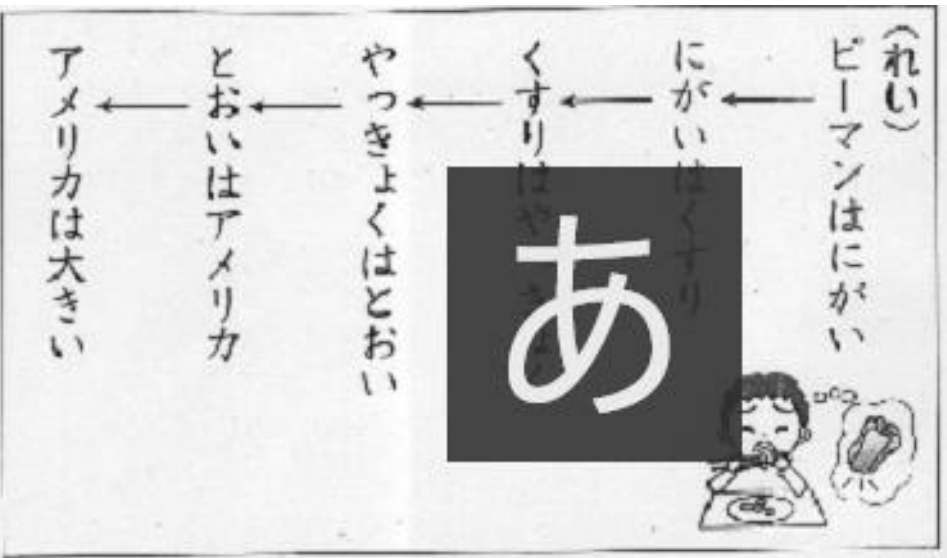 (れい)
ピーマンはにがい
にがいはくすり
くすりはや
やっきょくはとおい
とおいはアメリカ
アメリカは大きい
あ